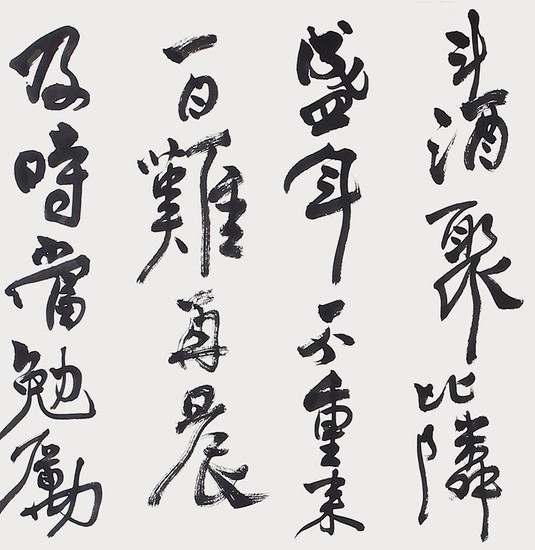 斗酒聚比隣
盛年不重来
一日難再晨
及時當勉勵